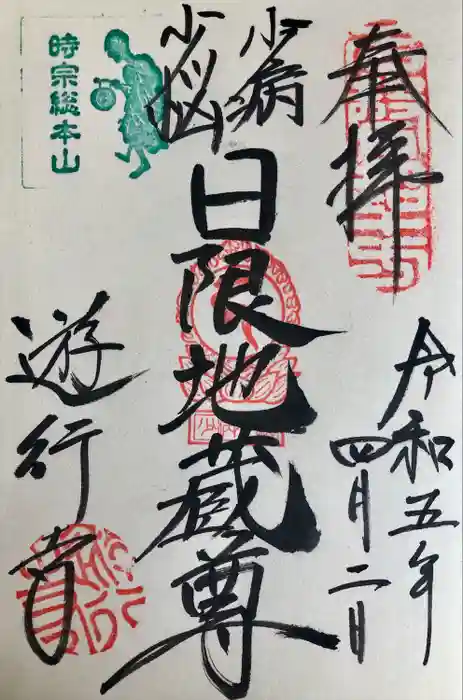 奉拝
令和五年
四月二日
少病
少悩
日限地蔵尊
時宗総本山
遊行寺